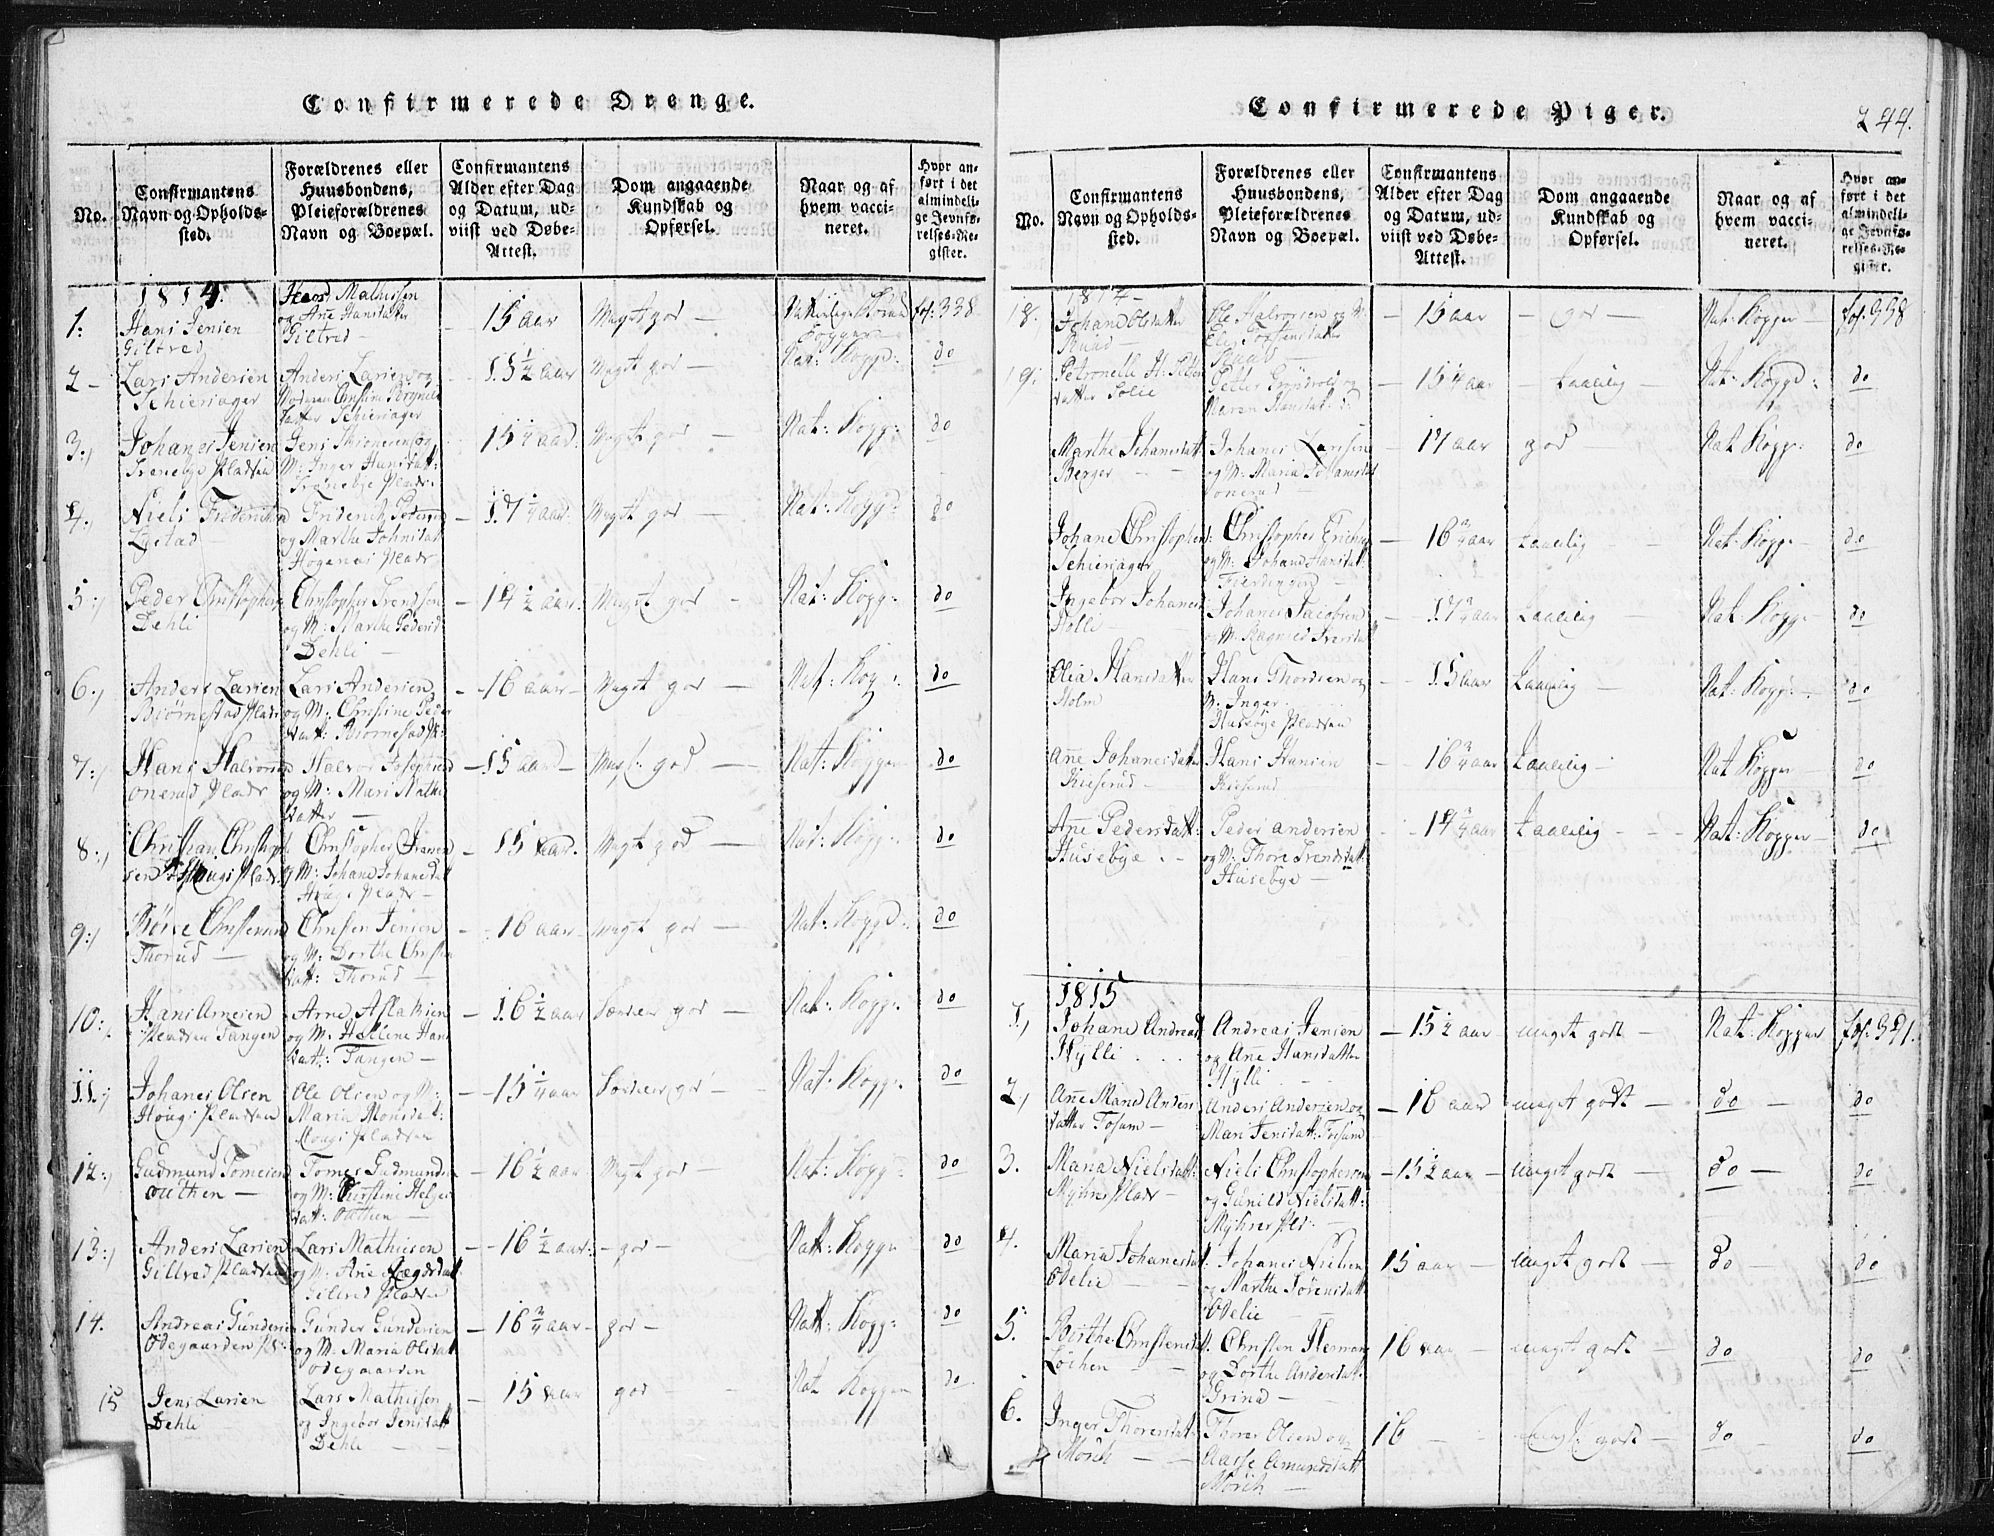 Confirmerede Drenge.
No.
Confirmantens
Navn og Opholds-
sted.
Forældrenes eller
Huusbondens,
Pleieforældrenes
Navn og Boepæl.
Confirmantens
Alder efter Dag
og Datum, ud-
viist ved Døbe-
Attest.
Dom angaaende
Kundskab og
Opførsel.
Naar og af
hvem vacci-
neret.
Hvor an-
ført i det
almindeli-
ge Jevnfø-
relses-Re-
gister.
1814.
1:
Hans Jensen
Giltred
Hans Mathissen
og Ane Hansdatter
Giltred
15 aar
Meget god
Naturlige
Koppger
fol: 338
2
Lars Andersen
Schieriager
Anders Larsen og
Christine
datter Schieriager
15 1/2 aar
Meget god
Nat: Kopp:
do
3:)
Johanes Jensen
Pladsen
Jens
M: Inger Hansdatt:
Plads:
15 1/4 aar
Meget god
Nat: Kopp:
do
4:)
Niels Frederiksen
Frederik Pedersen
og Marthe
Plads
17 1/4 aar
Meget god
Nat: Kopp:
do
5:)
Peder Christophers
Dehli
Christopher
og M: Marthe Peders
Dehli
14 1/2 aar
Meget god
Nat: Kopp:
do
6:)
Anders Larsen
Biørnestad Plads
Lars Andersen
og M: Christine Peder
datt: Biørnestad Pl:
16 aar
Meget god
Nat: Kop:
do
7:)
Hans Halvorsen
Onerud Plads
Halvor Josephsen
og M: Mari Mathi
datter
15 aar
Meg: god
Nat: Kopper
do
8:)
Christian Christoph
sen Hougs Plads
Christopher Iversen
og M: Johane Johanesdat
Hougs Plads
15 aar
Megt god
Nat: Kopp:
do
9:)
Thorud
Christen Jensen
og M: Dorthe Christen
datt: Thorud
16 aar
Megt god
Nat: Kopp:
do
10:
Hans Arnesen
Pladsen Tangen
Arne Aslaksen
og M: Hellene Hans
datt: Tangen
16 1/2 aar
god
Nat: Kopp:
do
11:)
Johanes Olsen
Hougs Pladsen
Ole Olsen og M:
Maria Monsdat:
Hougs Pladsen
15 1/4 aar
god
Nat: Kopp:
do
12:)
Gudmund Tomesen
Outhen
Tomes Gudmundsen
og M: Kirstine Helges
datt: Outhen
16 1/2 aar
Megt god
Nat: Kopp:
do
13:)
Anders Larsen
Gilred Pladsen
Lars Mathiesen
og M: Ane
Gilred Pladsen
16 1/2 aar
god
Natt: Kopper
do
14.
Andreas Gundersen
Odegaarden Pl:
Gunder Gundersen
og M: Maria Olsdat
Odegaarden
16 3/4 aar
god
Natt: Kopp:
do
15
Jens Larsen
Dehli
Lars Mathissen
og Ingebor Jensdatt
Dehli
15 aar
god
Nat Kopper
do
Confirmerede Piger.
244.
No.
Confirmantens
Navn og Opholds-
sted.
Forældrenes eller
Huusbondens,
Pleieforældrenes
Navn og Boepæl.
Confirmantens
Alder efter Dag
og Datum, ud-
viist ved Døbe-
Attest.
Dom angaaende
Kundskab og
Opførsel.
Naar og af
hvem vacci-
neret.
Hvor an-
ført i det
almindeli-
ge Jevnfø-
relses-Re-
gister.
1814
18.
Johane Olsdatter
Ole Halvorsen og M:
15 aar
god
Nat: Kopper
fol. 338
19.
Petronelle
datter Solie
Petter Grøndvold og
Maren Hansdatt: d:
15 1/4 aar
Taalelig
Nat: Kopp:
do
Marthe Johanesdatt
Berger
Johanes Larssen
og M: Maria Johanesdat
Onerud
17 aar
god
Nat Kopp:
do
Johane Christophersd:
Schieriager
Christopher
og M: Johane Hansdat:
Fierdingen
16 3/4 aar
Taalelig
Nat: Kopp:
do
Ingebor Johanesd
Johanes Jacobsen
og M: Ragnild Iversdatt
17 3/4 aar
Taalelig
Nat: Kopp:
do
Olia Hansdatter
Holm
Hans Thordsen og
M: Inger
Husebye Pladsen
15 aar
Taalelig
Nat: Kopp:
do
Ane Johanesdatter
Kieserud
Hans Hansen
Kieserud
16 3/4 aar
Taalelig
Nat Kopper
do
Ane Pedersdatt:
Husebye
Peder Andersen
og M: Thore
Husebye
14 3/4 aar
Taalelig
Nat: Kopper
do
1815
1.)
Johane Andreasd
Hylli
Andreas Jensen
og Ane Hansdatter
Hylli
15 1/2 aar
meget godt
Nat: Kopper
fol. 391.
2.)
Ane Maria Anders
datter Tosum
Anders Andersen og
Mari Jensdatt: Tosum
16 aar
meget godt
do
do
3.
Maria Nielsdatt:
Myhrer Plads
Niels Christophersen
og Gunild Nielsdatt:
Myhrer Pls:
15 1/2 aar
meget godt
do
do
4.
Maria Johanesdat
Odelie
Johanes Nielsen
og Marthe Sørensdatt
Odelie
15 aar
meget godt
do
do
5.
Birthe Christensd
Løchen
Christen Herman
og Dorthe Andersdat:
Grind
16 aar
meget godt
do
do
6.
Inger Thoresdat:
Mørch
Thores Olsen og
Aasse Amundsdatt
Mørch
16
godt
do
do